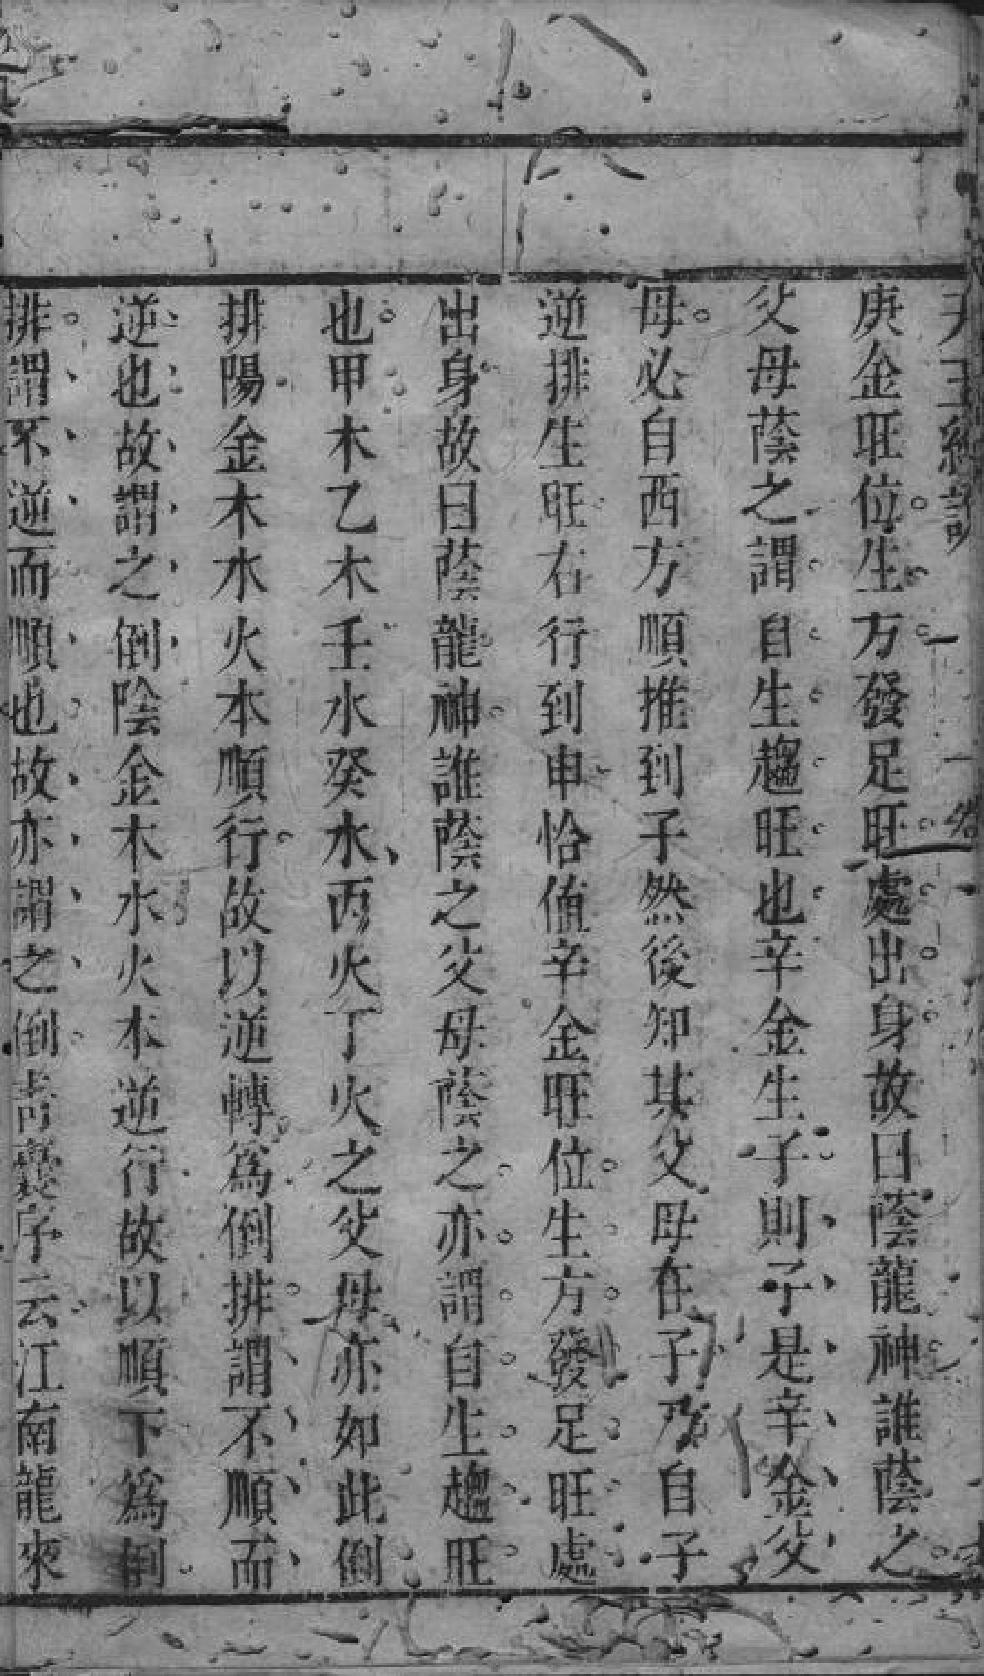 庚金旺位生方發足旺處出身故曰蔭龍神誰蔭之
父母蔭之謂自生趨旺也辛金生子則子是辛金父
母必自西方順推到子然後知其父母在子乃自子
逆排生旺右行到申恰值辛金旺位生方發足旺處
出身故曰蔭龍神誰蔭之父母蔭之亦謂自生趨旺
也甲木乙木壬水癸水丙火丁火之父母亦如此倒
排陽金木水火本順行故以逆轉為倒排謂不順而
逆也故謂之倒陰金木水火本逆行故以順下為倒
排謂不逆而順也故亦謂之倒青囊序云江南龍來